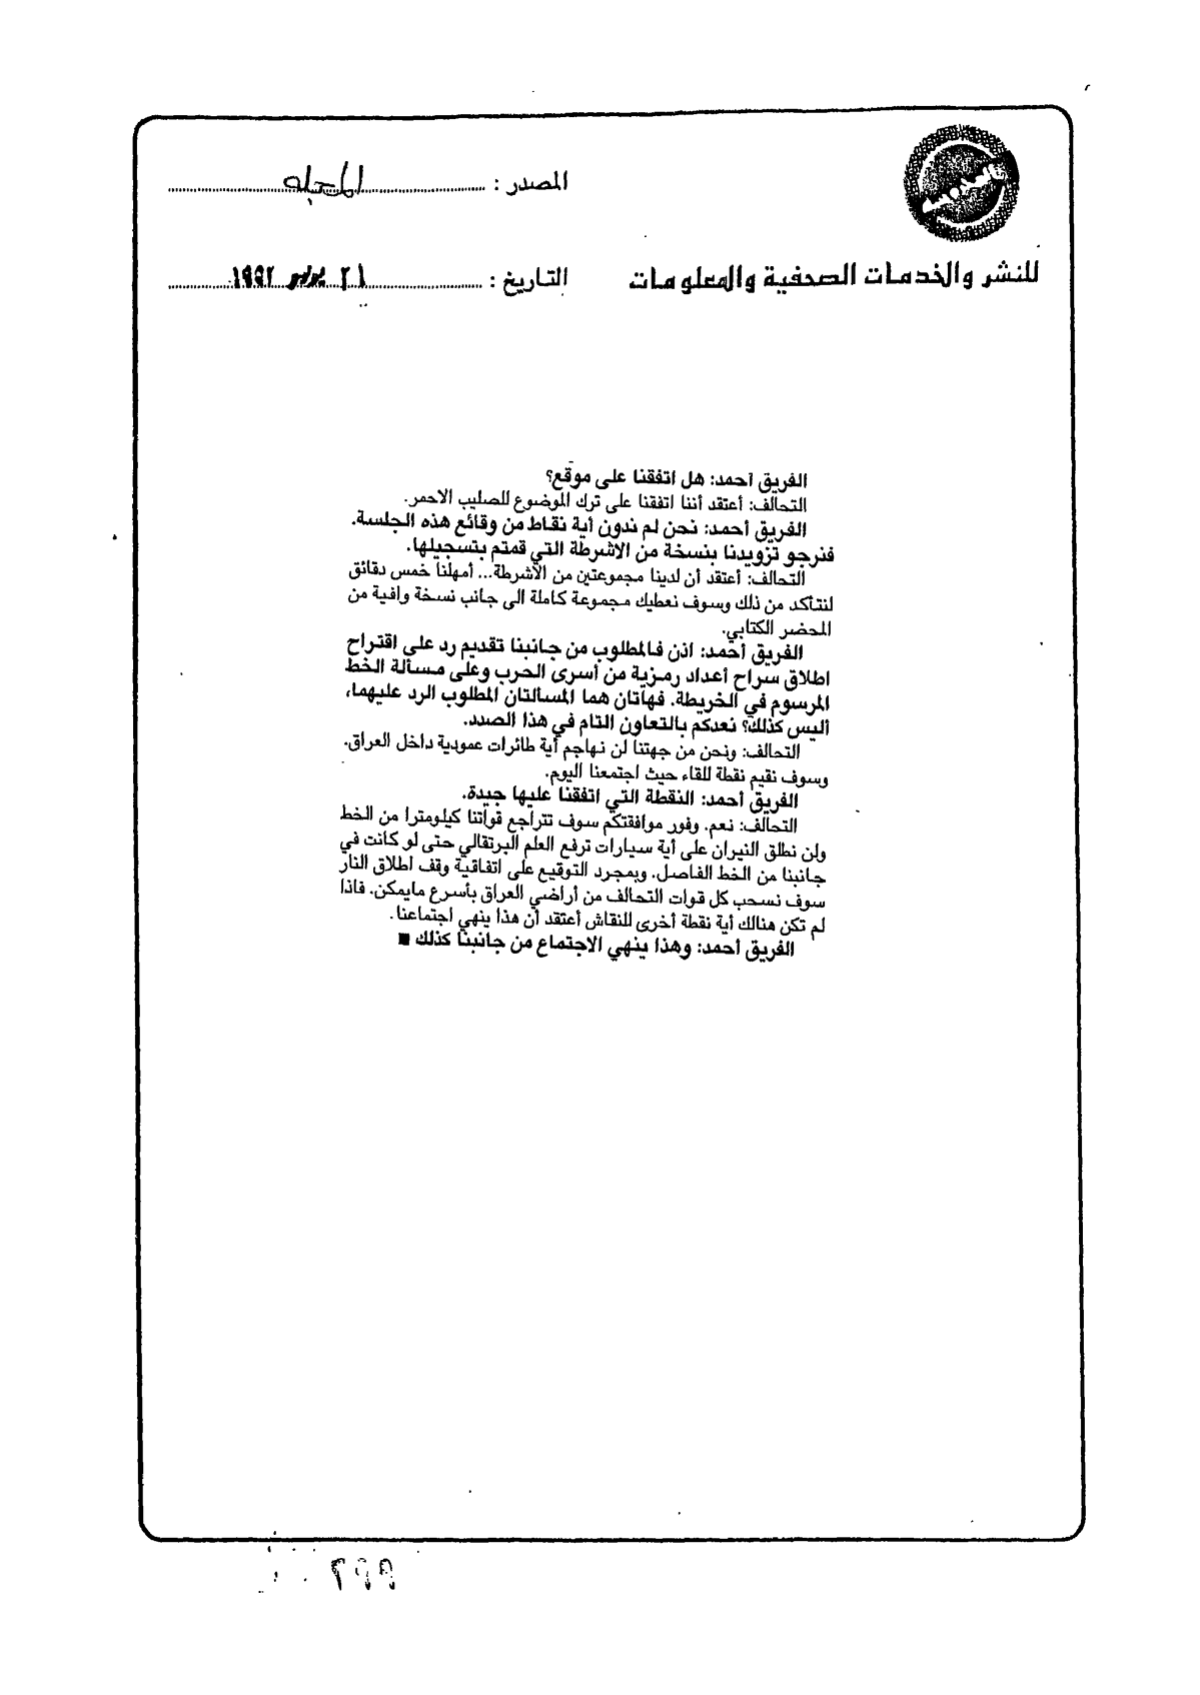 المصدر : المجلة
للنشر والخدمات الصحفية والمعلومات
التاريخ : ٢١ يوليو ١٩٩٢
الفريق أحمد: هل اتفقنا على موقع؟
التحالف: أعتقد أننا اتفقنا على ترك الموضوع للصليب الاحمر.
الفريق أحمد: نحن لم ندون أية نقاط من وقائع هذه الجلسة.
فنرجو تزويدنا بنسخة من الاشرطة التي قمتم بتسجيلها.
التحالف: أعتقد أن لدينا مجموعتين من الأشرطة... أمهلنا خمس دقائق
لنتأكد من ذلك وسوف نعطيك مجموعة كاملة الى جانب نسخة وافية من
المحضر الكتابي.
الفريق أحمد: اذن فالمطلوب من جانبنا تقديم رد على اقتراح
اطلاق سراح أعداد رمزية من أسرى الحرب وعلى مسألة الخط
المرسوم في الخريطة. فهاتان هما المسألتان المطلوب الرد عليهما،
أليس كذلك؟ نعدكم بالتعاون التام في هذا الصدد.
التحالف: ونحن من جهتنا لن نهاجم أية طائرات عمودية داخل العراق.
وسوف نقيم نقطة للقاء حيث اجتمعنا اليوم.
الفريق أحمد: النقطة التي اتفقنا عليها جيدة.
التحالف: نعم. وفور موافقتكم سوف تتراجع قواتنا كيلومترا من الخط
ولن نطلق النيران على أية سيارات ترفع العلم البرتقالي حتى لو كانت في
جانبنا من الخط الفاصل. وبمجرد التوقيع على اتفاقية وقف اطلاق النار
سوف نسحب كل قوات التحالف من أراضي العراق بأسرع مايمكن. فاذا
لم تكن هنالك أية نقطة أخرى للنقاش أعتقد أن هذا ينهي اجتماعنا.
الفريق أحمد: وهذا ينهي الاجتماع من جانبنا كذلك ■